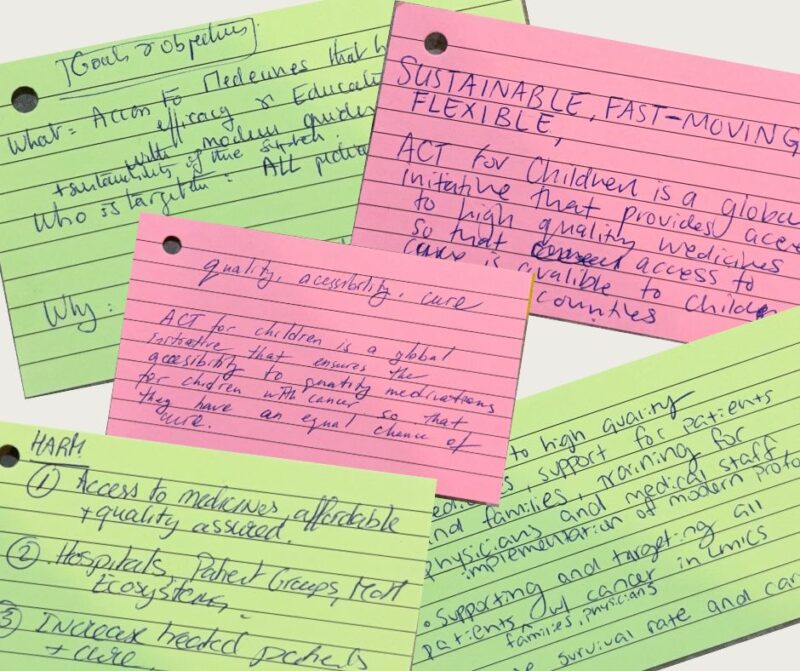 Goals & objectives
What = Access to Medecines that h
efficacy & Educati
with modern guide
+ sustainability of the system.
Who is targeted: ALL
Why:
SUSTAINABLE, FAST-MOVING
FLEXIBLE,
ACT for Children is a globa
initiative that provides acce
to high quality medicines
so that access to
cure is avalible to childe
counties
quality, acessibility, cure
ACT for children is a global
initiative that ensures the
accesibility to quality medications
for children with cancer so that
they have an equal chance of
cure.
HARM
① Access to medicines, affordable
+ quality assured.
② Hospitals, Patient Groups, MoH
Ecosystems.
③ Increase treated patients
+ cure
to high quality
edicines, support for patients
nd families, training for
physicians and medical staff
implementation of modern proto
• Supporting and targeting all
patients w/ cancer in LMICs
families, physicians
survival rate and car